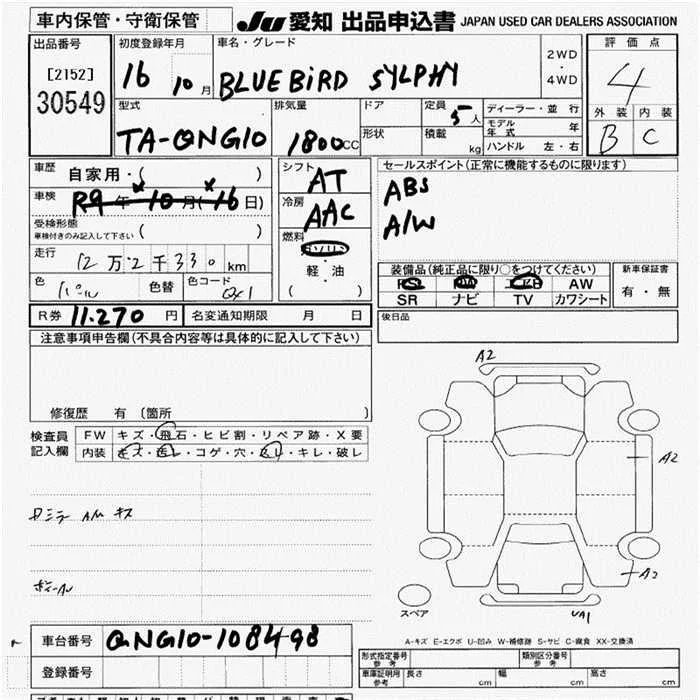 車内保管・守衛保管
JU 愛知 出品申込書 JAPAN USED CAR DEALERS ASSOCIATION
出品番号
[2152]
30549
初度登録年月
16 10 月
車名・グレード
BLUEBIRD SYLPHY
2WD
・
4WD
評価点
4
外装 内装
B C
型式
TA-QNG10
排気量
1800 CC
ドア
形状
定員 5 人
積載 kg
ディーラー・並行
モデル年式 年
ハンドル 左・右
車歴 自家用・( )
車検 R9 年 10 月 (16 日)
受検形態
車検付きのみ記入して下さい ( )
走行 12 万 2 千 330 km
色 色替 色コード
シフト AT
冷房 AAC
燃料
軽・油
( )
セールスポイント(正常に機能するものに限ります)
ABS
A/W
装備品(純正品に限り○をつけてください)
PS PW エアB AW
SR ナビ TV カワシート
新車保証書
有・無
R券 11.270 円 名変通知期限 月 日
後日品
注意事項申告欄(不具合内容等は具体的に記入して下さい)
修復歴 有 〔箇所 〕
検査員
記入欄
FW キズ・飛石・ヒビ割・リペア跡・X要
内装 キズ・汚レ・コゲ・穴・スレ・キレ・破レ
A2
A2
A2
UA1
スペア
A-キズ E-エクボ U-凹み W-補修跡 S-サビ C-腐食 XX-交換済
車台番号 QNG10-108498
登録番号
形式指定番号
参考
類別区分番号
参考
車庫証明用
参考
長さ cm 幅 cm 高さ cm